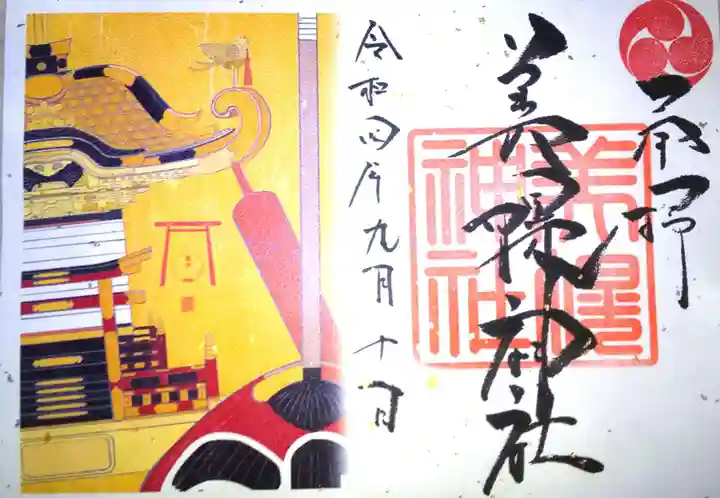 奉拝
美幌神社
美幌神社
令和四年九月十日